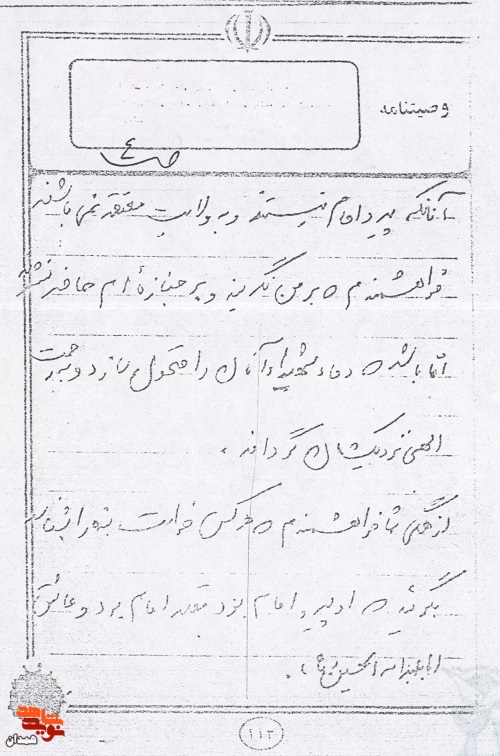 وصیتنامه
ص ٤
آنانکه پیرو امام نیستند و به ولایت معتقد نمی باشند
خواهشمندم که بر من نگریند و بر جنازه ام حاضر نشوند
امّا باشد که دعاء شهیدان آنان را متحول سازد و به رحمت
الهی نزدیکشان گرداند .
از همگی شما خواهشمندم که هر کس خواست بنده را بشناسد
بگوئید که او پیرو امام بود مقلد امام بود و عاشق
اباعبداله الحسین (ع) .
۱۱۳
نوید شاهد
همدان